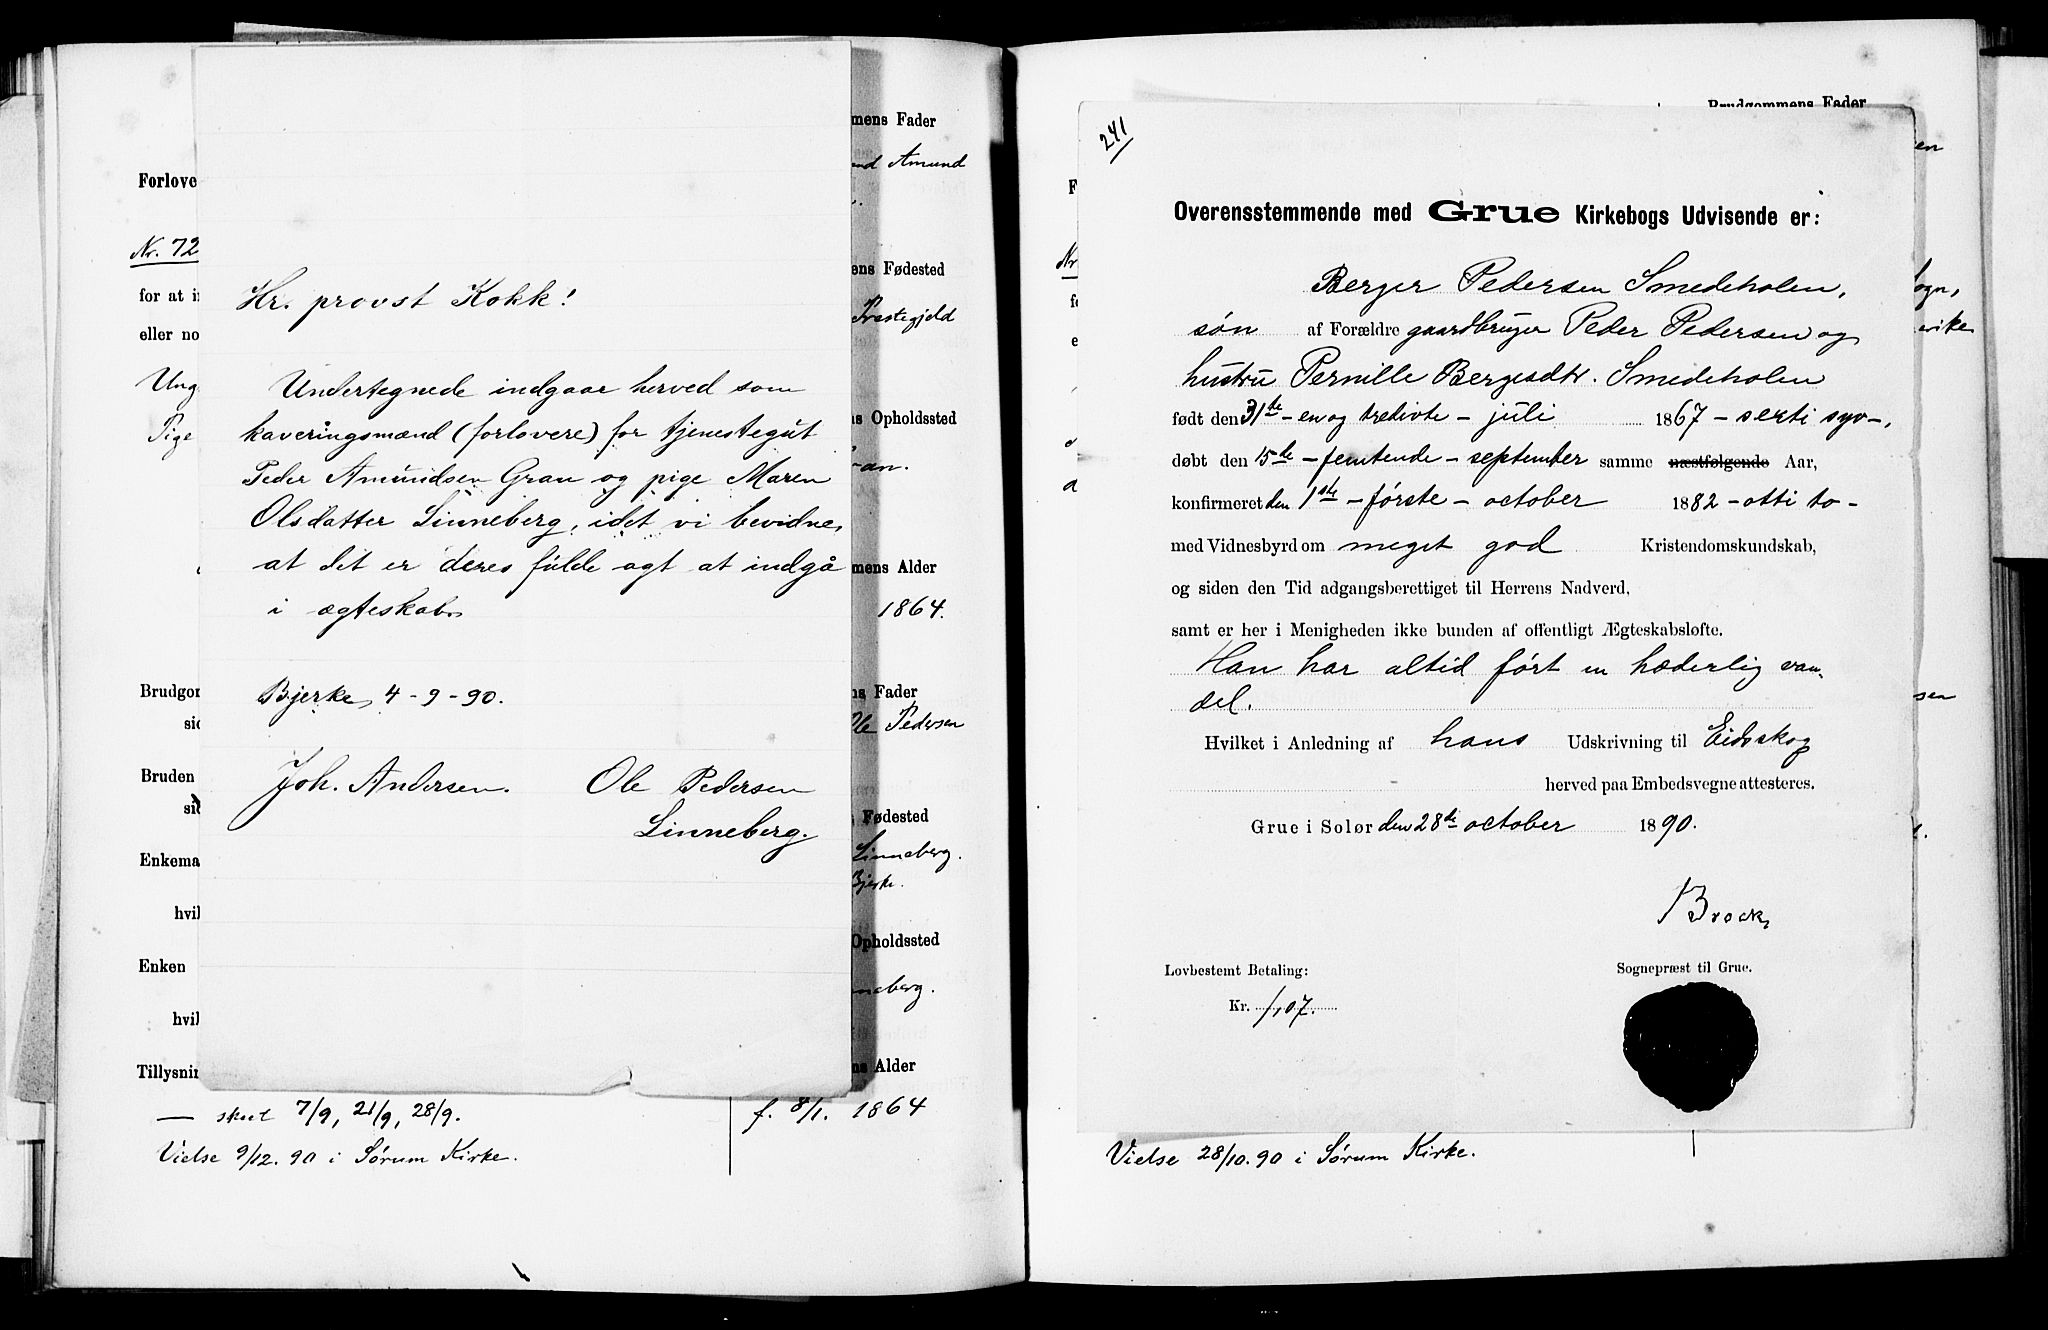 Forlove
Nr. 72
for at i
eller no
Ung
Pige
Brudgo
sid
Bruden
si
Enkema
hvil
Enken
hvil
Tillysnin
Hr. provst Kokk!
Undertegnede indgaar herved som
kaveringsmænd (forlovere) for tjenestegut
Peder Amundsen Gran og pige Maren
Olsdatter Linneberg, idet vi bevidne,
at det er deres fulde agt at indgå
i ægteskab
Bjerke, 4-9-90.
Joh. Andersen. Ole Pedersen
Linneberg.
mens Fader
nd Amund
ens Fødested
Præstegjeld
ns Opholdssted
ran.
mens Alder
1864.
ns Fader
Ole Pedersen
Fødested
Linneberg.
Bjerke.
Opholdssted
nneberg.
ns Alder
— skeet 7/9, 21/9, 28/9.
f. 8/1. 1864
Vielse 9/12. 90 i Sørum Kirke.
Brudgommens Fader
241
en
F
Overensstemmende med Grue Kirkebogs Udvisende er:
Nr
ogn,
Berger Pedersen Smedeholen,
søn af Forældre gaardbruger Peder Pedersen og
hustru Pernille Bergesdtr. Smedeholen
født den 31te – en og tredivte – juli 1867 – serti syv –,
døbt den 15de – femtende – september samme næstfølgende Aar,
konfirmeret den 1ste – første – october 1882 – otti to –
med Vidnesbyrd om meget god Kristendomskundskab,
og siden den Tid adgangsberettiget til Herrens Nadverd,
samt er her i Menigheden ikke bunden af offentligt Ægteskabsløfte.
Han har altid ført en hæderlig van-
del.
sen
Hvilket i Anledning af hans Udskrivning til Eidskog
herved paa Embedsvegne attesteres.
Grue i Solør den 28de october 1890.
Brock
Lovbestemt Betaling: Sognepræst til Grue.
Kr. 1,07.
Vielse 28/10. 90 i Sørum Kirke.